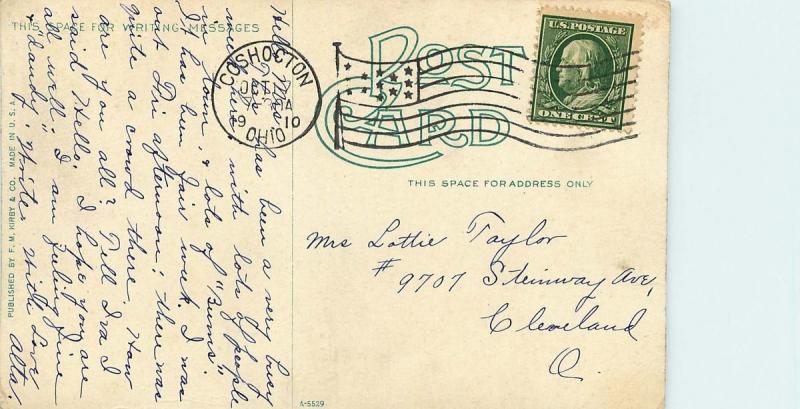 THIS SPACE FOR WRITING MESSAGES
Hello Mrs.
This has been a very busy
week here, with lots of people
in town, & lots of "Bums".
I has been fair week. I was
out Fri afternoon; there was
quite a crowd there. How
are you all? Tell Iva I
said Hello. I hope you are
all well; I am feeling fine
& dandy. Write. With Love
Alta.
PUBLISHED BY F. M. KIRBY & CO. MADE IN U. S. A.
COSHOCTON
OCT
19 10
OHIO
POST
CARD
U.S. POSTAGE
ONE CENT
THIS SPACE FOR ADDRESS ONLY
Mrs Lottie Taylor
# 9707 Steinway Ave,
Cleveland
O.
A-5529